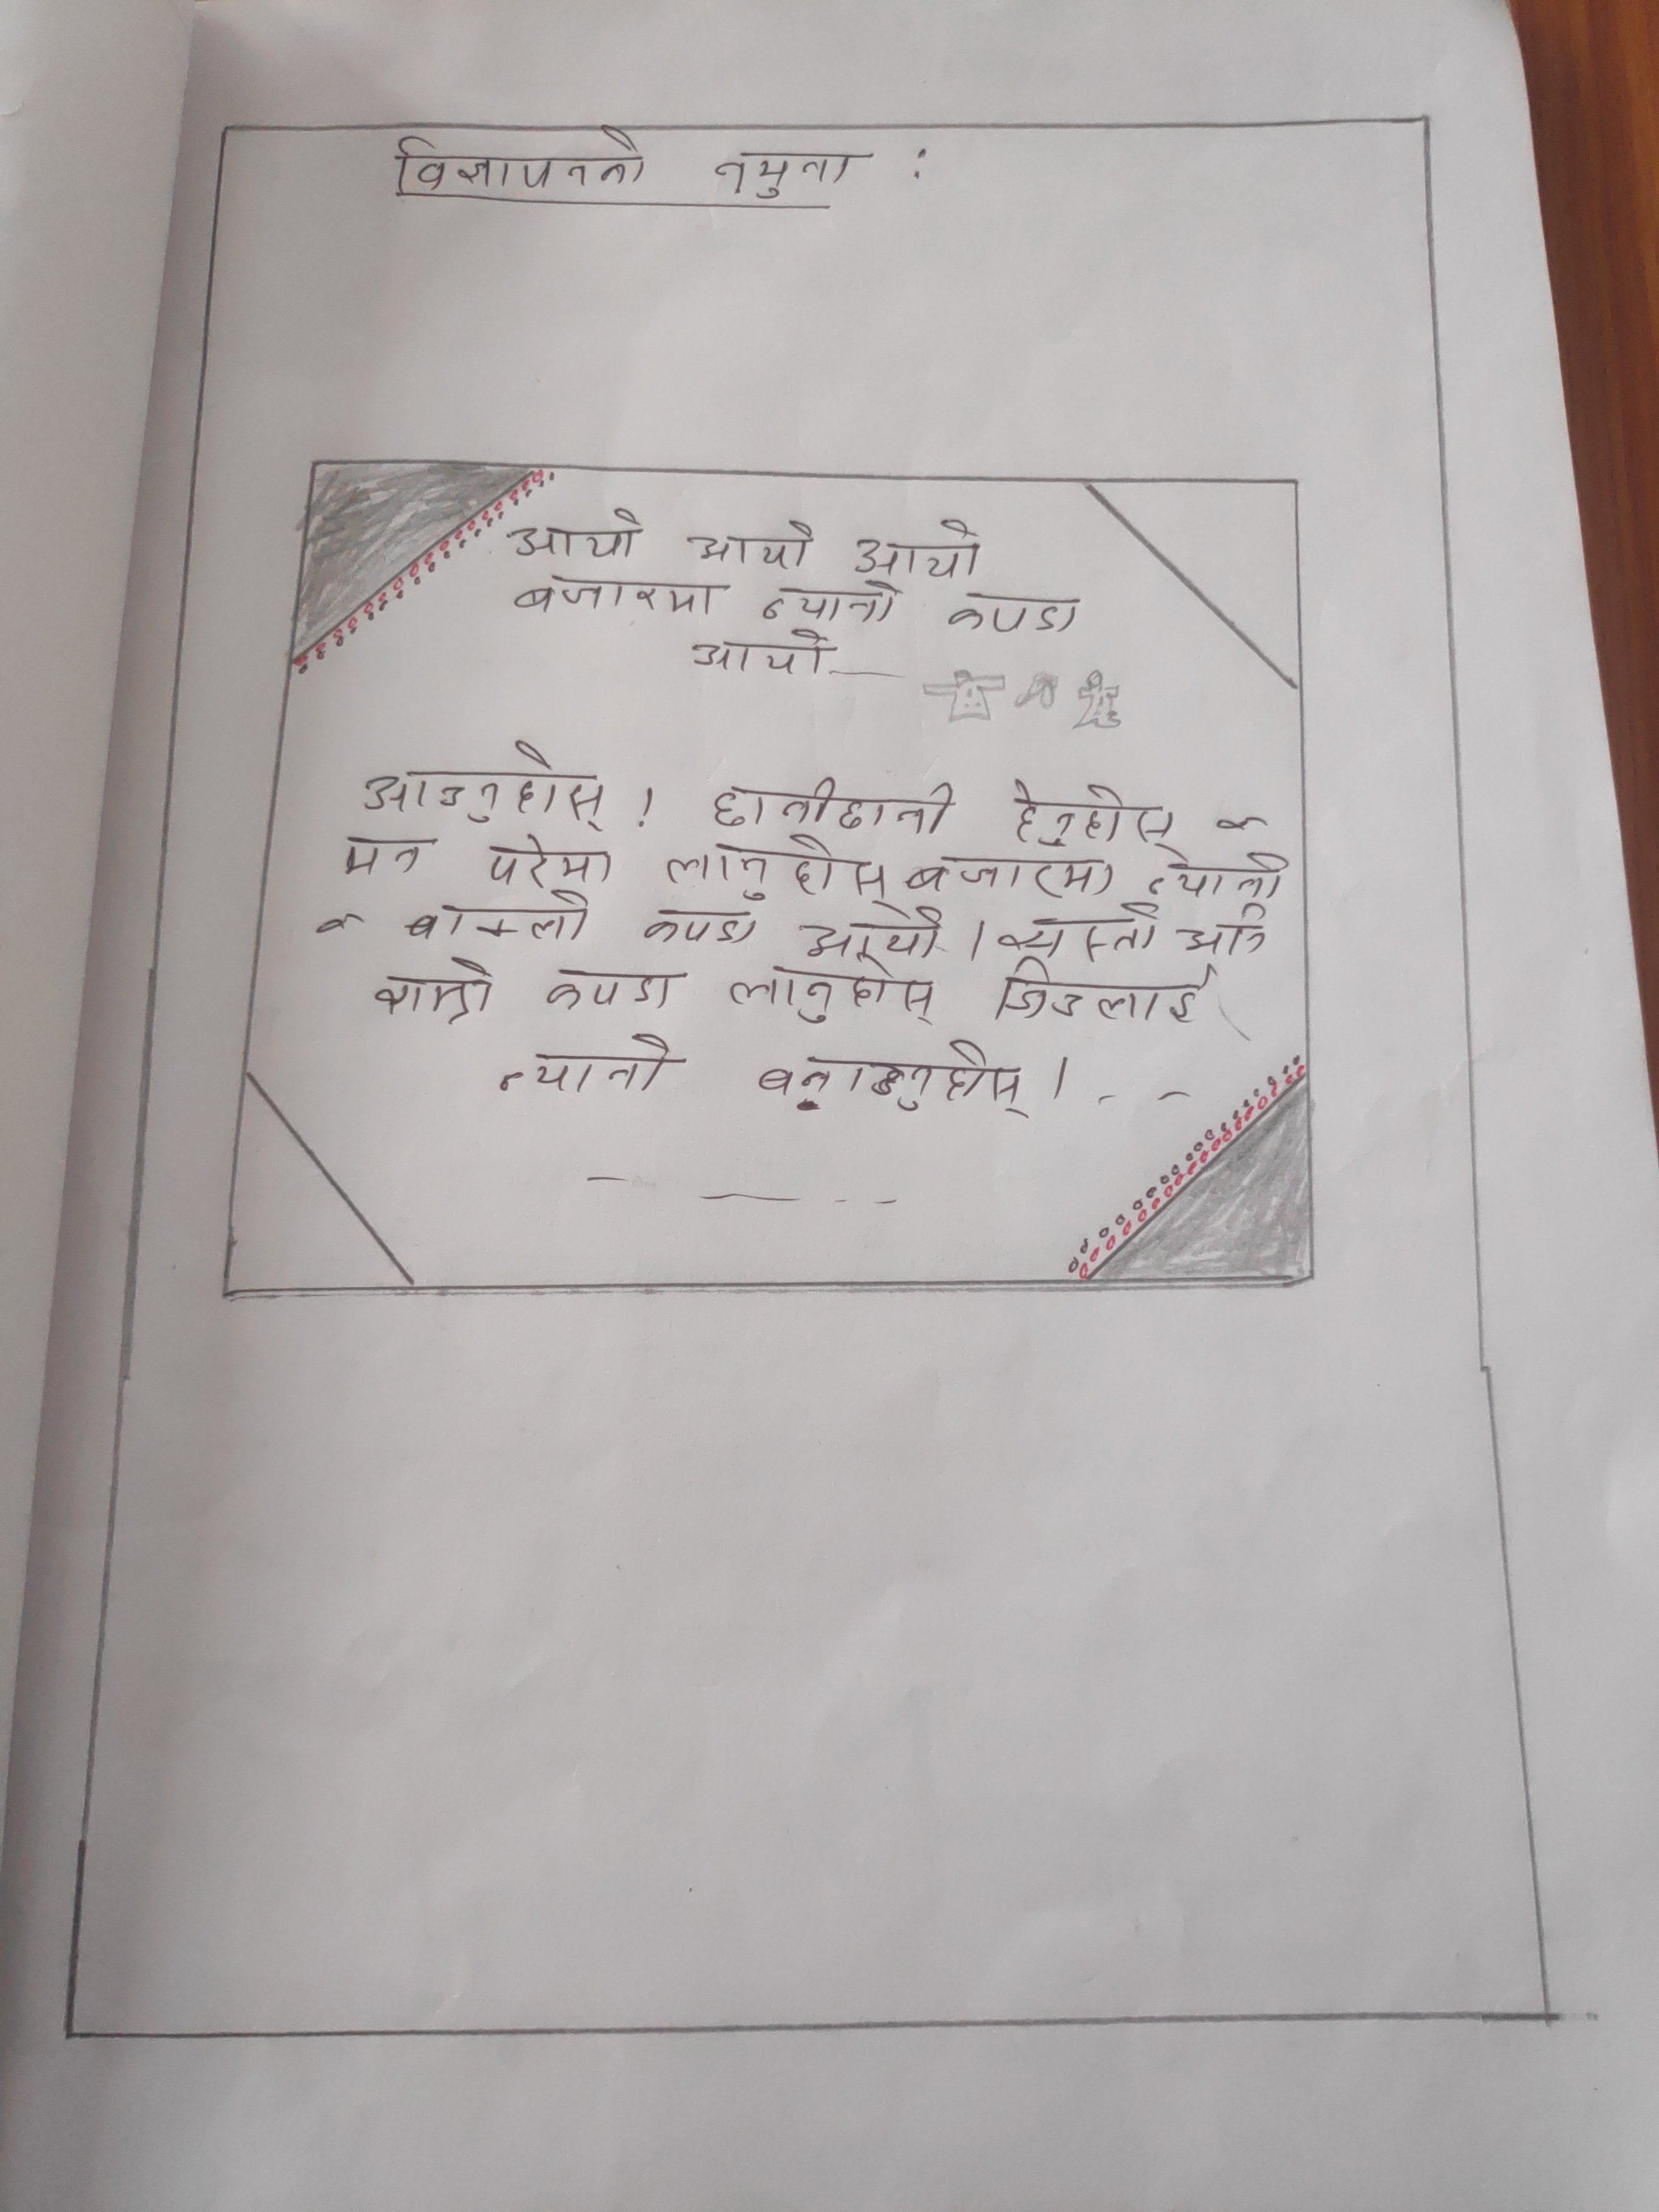 विज्ञापनको नमुना :
आयो आयो आयो
बजारमा न्यानो कपडा
आयो
आउनुहोस् ! छानीछानी हेर्नुहोस्
मन परेमा लानुहोस् बजारमा न्यानो
र बाक्लो कपडा आयो । यस्तो अति
राम्रो कपडा लानुहोस् जिउलाई
न्यानो बनाउनुहोस् ।